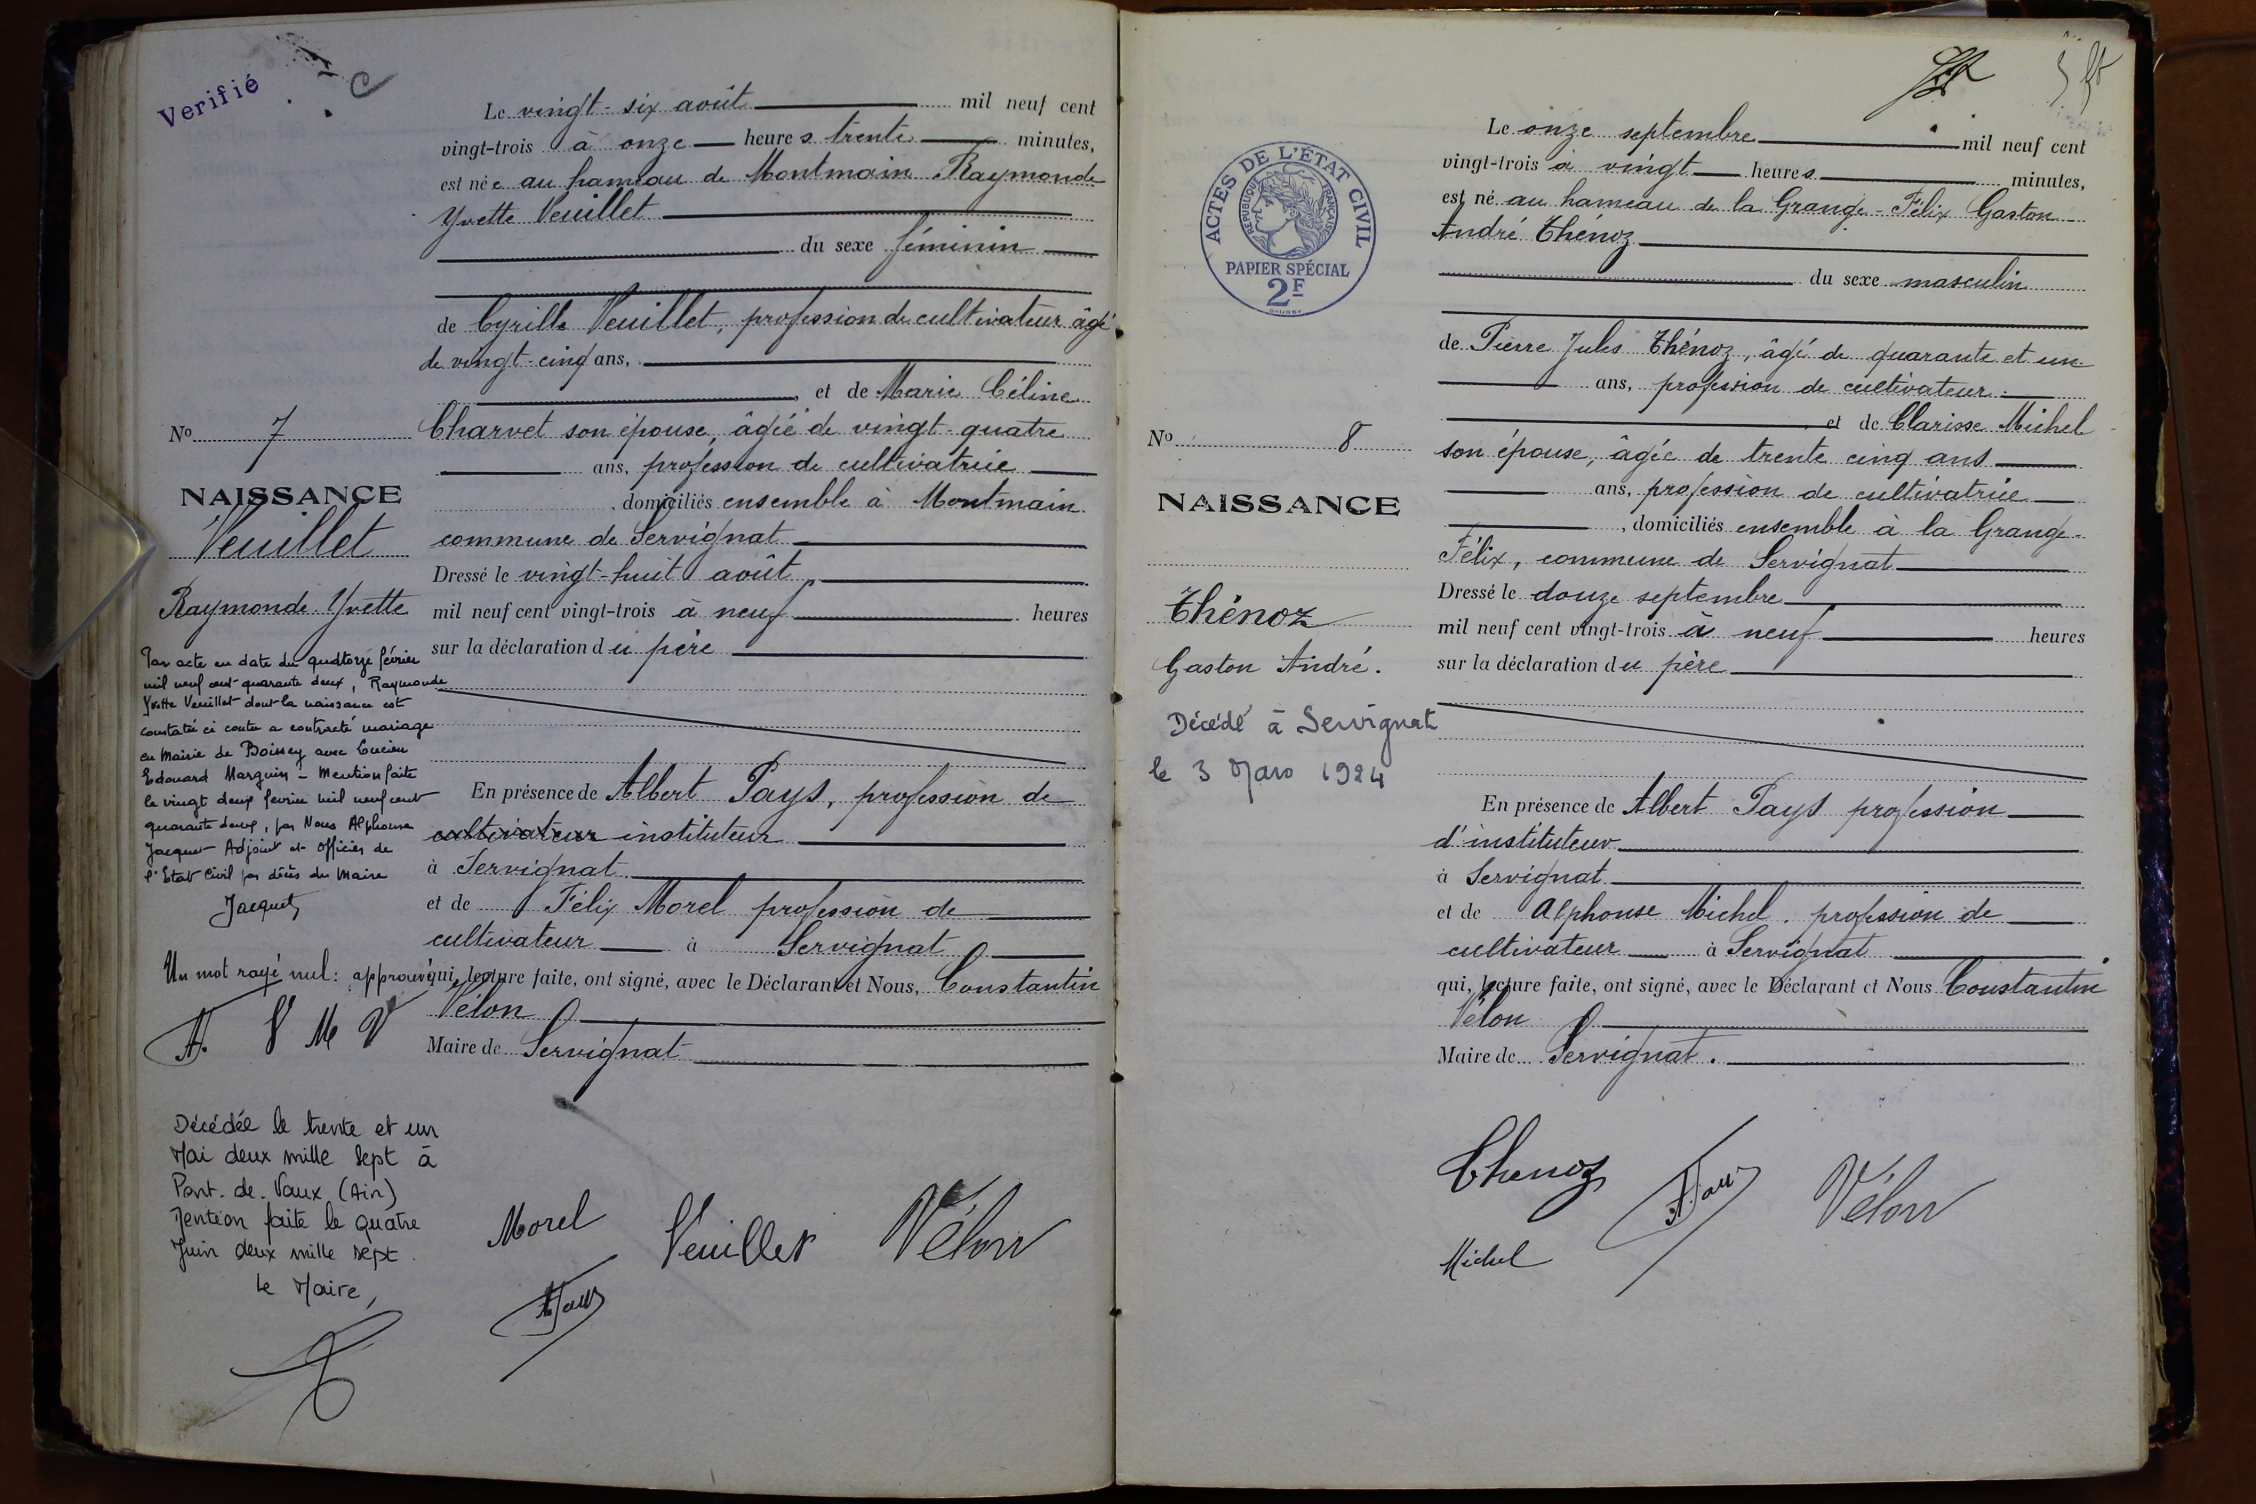 Verifié
Le vingt-six août mil neuf cent
vingt-trois à onze heures trente minutes,
est née au hameau de Montmain Raymonde
Yvette Veuillet
du sexe féminin
de Cyrille Veuillet, profession de cultivateur âgé
de vingt-cinq ans,
et de Marie Céline
Charvet son épouse, âgée de vingt-quatre
ans, profession de cultivatrice
, domiciliés ensemble à Montmain
commune de Servignat
Dressé le vingt-huit août
mil neuf cent vingt-trois à neuf heures
sur la déclaration du père
En présence de Albert Pays, profession de
cultivateur instituteur
à Servignat
et de Félix Morel profession de
cultivateur à Servignat
qui, lecture faite, ont signé, avec le Déclarant et Nous, Constantin
Vélon
Maire de Servignat
Morel Veuillet Vélon
No 7
NAISSANCE
Veuillet
Raymonde Yvette
Par acte en date du quatorze février
mil neuf cent quarante deux, Raymonde
Yvette Veuillet dont la naissance est
constatée ci contre a contracté mariage
en Mairie de Boissey avec Lucien
Edouard Marguin - Mention faite
le vingt deux février mil neuf cent
quarante deux, par Nous Alphonse
Jacquet Adjoint et Officier de
l'Etat Civil par décès du Maire
Jacquet
Un mot rayé nul: approuvé
M V
Décédée le trente et un
Mai deux mille sept à
Pont-de-Vaux (Ain)
Mention faite le quatre
Juin deux mille sept.
Le Maire,
ACTES DE L'ÉTAT CIVIL
RÉPUBLIQUE FRANÇAISE
PAPIER SPÉCIAL
2F
Le onze septembre mil neuf cent
vingt-trois à vingt heures minutes,
est né au hameau de la Grange-Félix Gaston
André Thénoz
du sexe masculin
de Pierre Jules Thénoz, âgé de quarante et un
ans, profession de cultivateur
et de Clarisse Michel
son épouse, âgée de trente cinq ans
ans, profession de cultivatrice
, domiciliés ensemble à la Grange-
Félix, commune de Servignat
Dressé le douze septembre
mil neuf cent vingt-trois à neuf heures
sur la déclaration du père
En présence de Albert Pays profession
d'instituteur
à Servignat
et de Alphonse Michel. profession de
cultivateur à Servignat
qui, lecture faite, ont signé, avec le Déclarant et Nous Constantin
Vélon
Maire de Servignat.
Thenoz Vélon
Michel
No 8
NAISSANCE
Thénoz
Gaston André.
Décédé à Servignat
le 3 Mars 1924